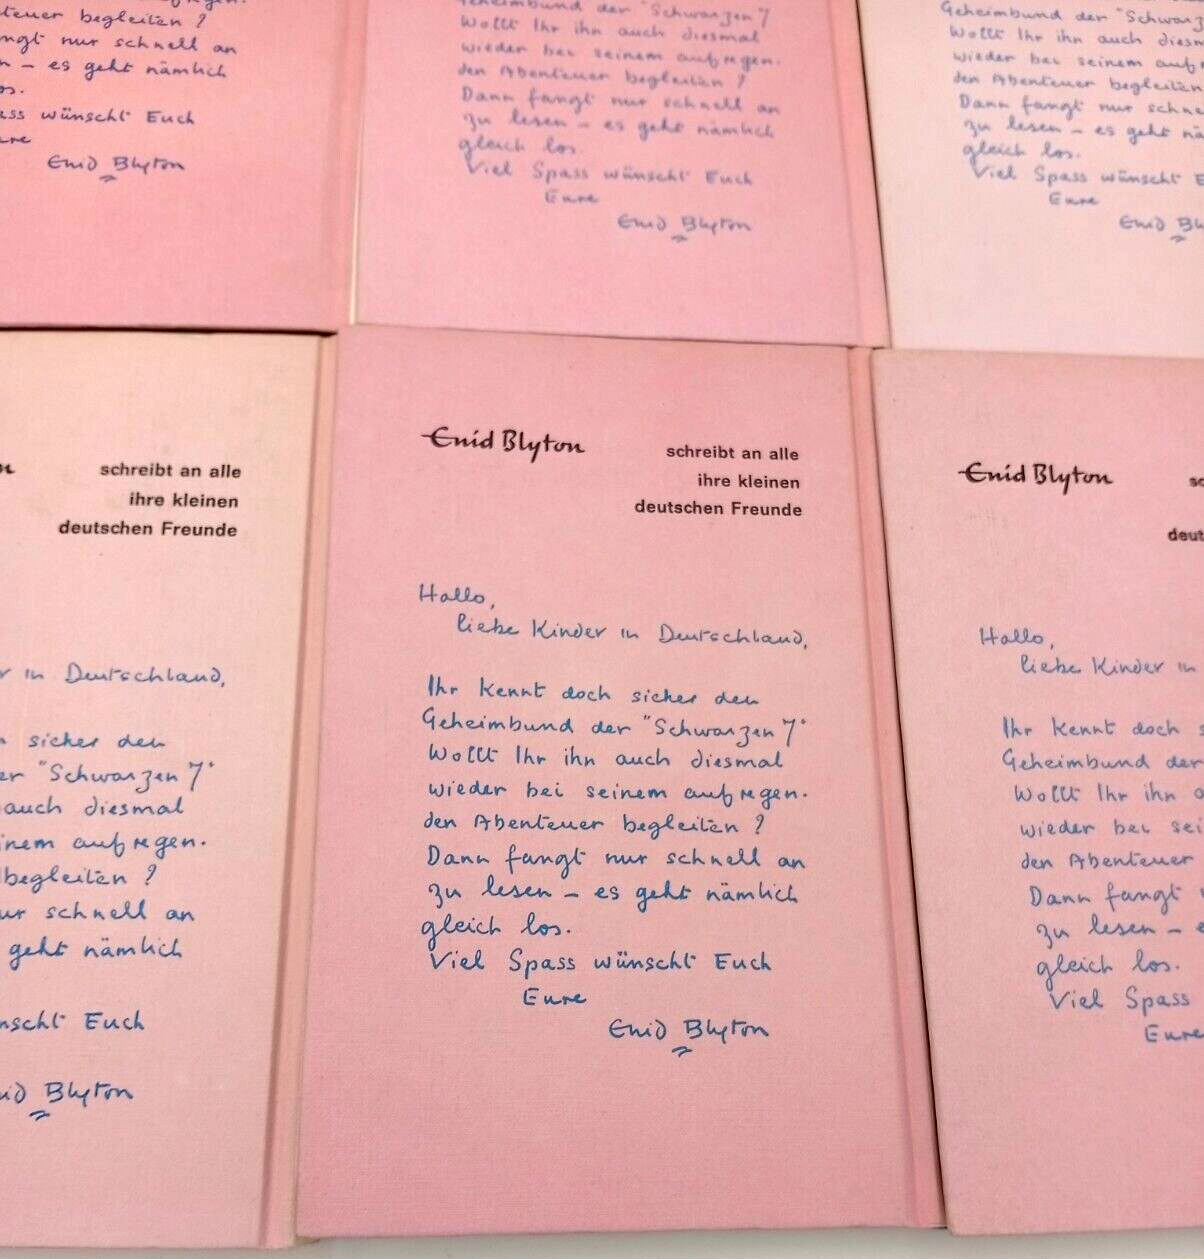 teuer begleiten ?
ngt nur schnell an
n – es geht nämlich
os.
ass wünscht Euch
ure
Enid Blyton
Geheimbund der "Schwarzen 7
Wollt Ihr ihn auch diesmal
wieder bei seinem aufregen.
den Abenteuer begleiten ?
Dann fangt nur schnell an
zu lesen – es geht nämlich
gleich los.
Viel Spass wünscht Euch
Eure
Enid Blyton
Geheimbund der "Schwarz
Wollt Ihr ihn auch diesm
wieder bei seinem aufr
den Abenteuer begleiten
Dann fangt nur schne
zu lesen – es geht nä
gleich los.
Viel Spass wünscht E
Eure
Enid Bly
n
schreibt an alle
ihre kleinen
deutschen Freunde
r in Deutschland,
sicher den
er "Schwarzen 7"
auch diesmal
inem aufregen.
begleiten ?
ur schnell an
geht nämlich
nscht Euch
nid Blyton
Enid Blyton
schreibt an alle
ihre kleinen
deutschen Freunde
Hallo,
liebe Kinder in Deutschland,
Ihr kennt doch sicher den
Geheimbund der "Schwarzen 7"
Wollt Ihr ihn auch diesmal
wieder bei seinem aufregen.
den Abenteuer begleiten ?
Dann fangt nur schnell an
zu lesen – es geht nämlich
gleich los.
Viel Spass wünscht Euch
Eure
Enid Blyton
Enid Blyton
sc
deut
Hallo,
liebe Kinder in
Ihr kennt doch s
Geheimbund der
Wollt Ihr ihn a
wieder bei sei
den Abenteuer
Dann fangt
zu lesen – e
gleich los.
Viel Spass
Eure